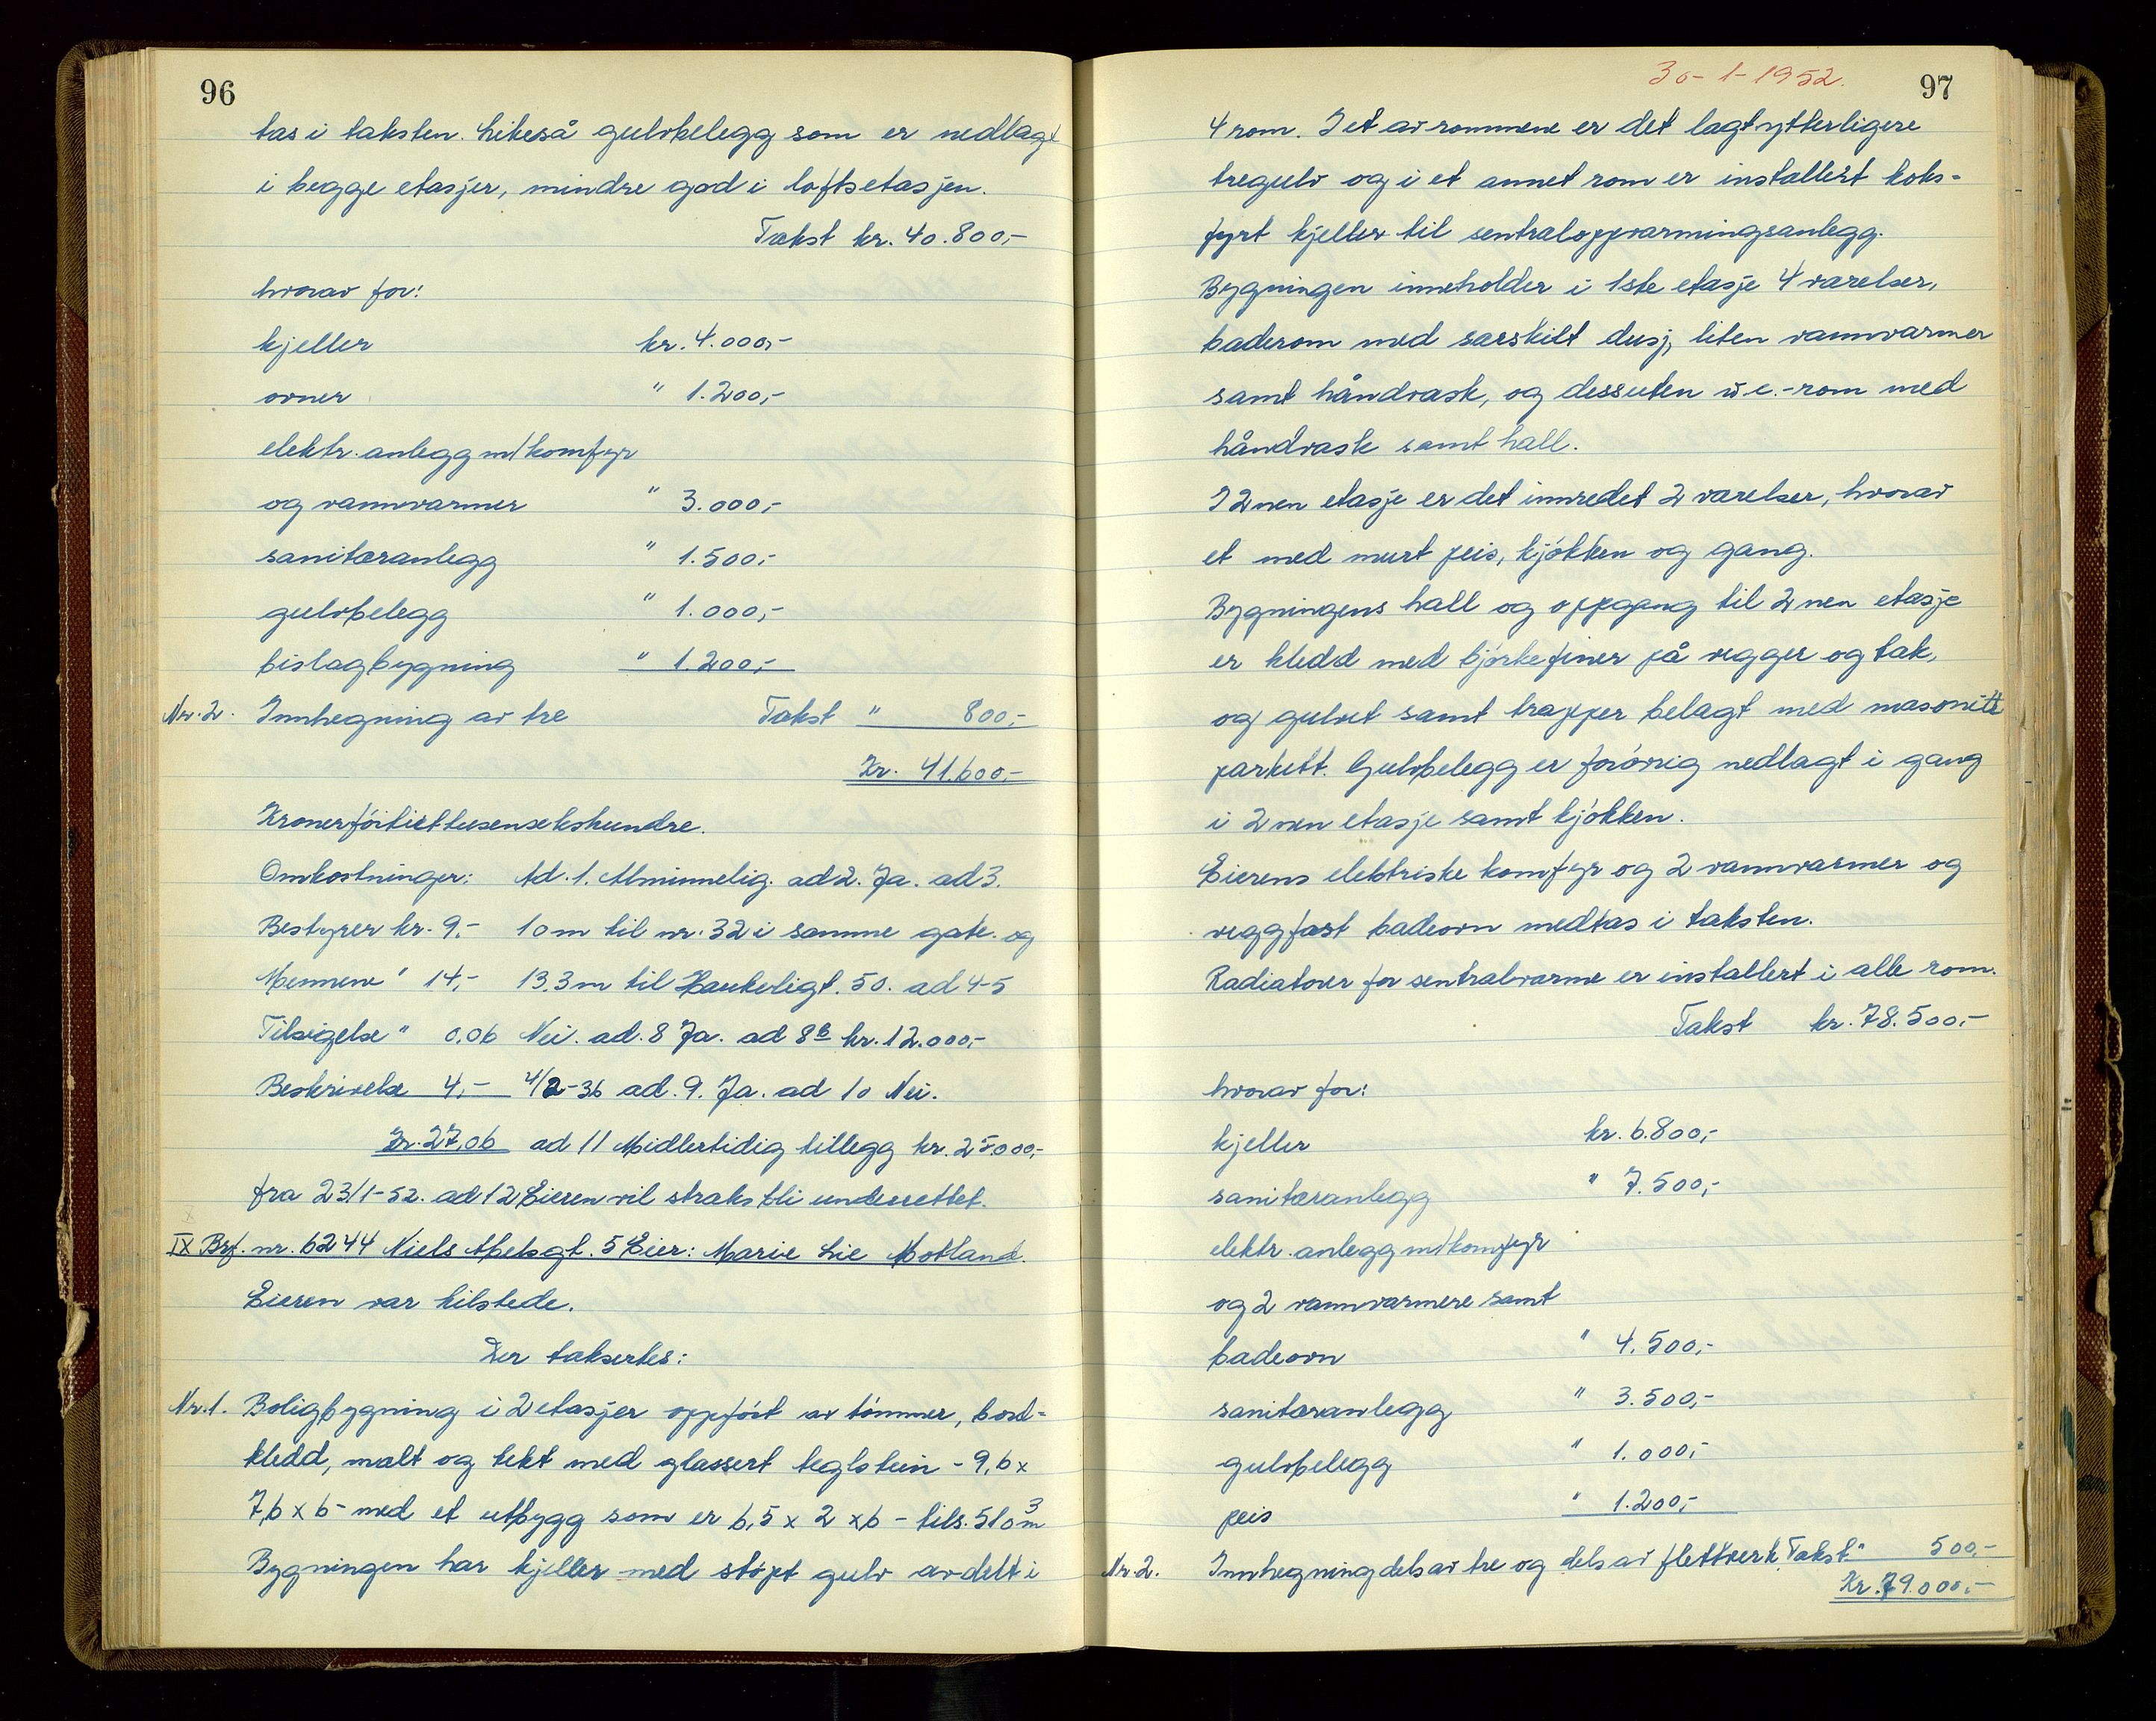 96
tas i taksten. Likeså gulvbelegg som er nedlagt
i begge etasjer, mindre god i loftsetasjen.
Takst kr. 40.800,-
hvorav for:
kjeller kr. 4.000,-
ovner " 1.200,-
elektr. anlegg m/komfyr
og vannvarmer " 3.000,-
sanitæranlegg " 1.500,-
gulvbelegg " 1.000,-
bislagbygning " 1.200,-
Nr. 2. Innhegning av tre Takst " 800,-
Kr. 41.600,-
Kronerförtiettusensekshundre.
Omkostninger: Ad. 1. Alminnelig. ad 2. Ja. ad 3.
Bestyrer kr. 9,- 10 m til nr. 32 i samme gate. og
Mennene " 14,- 13.3 m til Haukeligt. 50. ad 4-5
Tilsigelse " 0.06 Nei. ad. 8 Ja. ad 8b kr. 12.000,-
Beskrivelse 4,- 4/2-36 ad. 9. Ja. ad 10 Nei.
Kr. 27,06 ad 11 Midlertidig tillegg kr. 25.000,-
fra 23/1-52. ad 12 Eieren vil straks bli underrettet.
IX Brf. nr. 6244 Niels Abelsgt. 5 Eier: Marie Lie Motland.
Eieren var tilstede.
Der taksertes:
Nr. 1. Boligbygning i 2 etasjer oppfört av tömmer, bord-
kledd, malt og tekt med glassert teglstein - 9,6 x
7,6 x 6 - med et utbygg som er 6,5 x 2 x 6 - tils. 510 m3
Bygningen har kjeller med stöpt gulv avdelt i
30-1-1952.
97
4 rom. I et av rommene er det lagt ytterligere
tregulv og i et annet rom er installert koks-
fyrt kjeller til sentraloppvarmingsanlegg.
Bygningen inneholder i 1ste etasje 4 værelser,
baderom med særskilt dusj, liten vannvarmer
samt håndvask, og dessuten w.c.-rom med
håndvask samt hall.
I 2nen etasje er det innredet 2 værelser, hvorav
et med murt peis, kjökken og gang.
Bygningens hall og oppgang til 2nen etasje
er kledd med bjørkefiner på vegger og tak,
og gulvet samt trapper belagt med masonitt
parkett. Gulvbelegg er forövrig nedlagt i gang
i 2nen etasje samt kjökken.
Eierens elektriske komfyr og 2 vannvarmer og
veggfast badeovn medtas i taksten.
Radiatorer for sentralvarme er installert i alle rom.
Takst kr. 78.500,-
hvorav for:
kjeller kr. 6.800,-
sanitæranlegg " 7.500,-
elektr. anlegg m/komfyr
og 2 vannvarmere samt
badeovn " 4.500,-
sanitæranlegg " 3.500,-
gulvbelegg " 1.000,-
peis " 1.200,-
Nr. 2. Innhegning dels av tre og dels av flettverk Takst " 500,-
Kr. 79.000,-